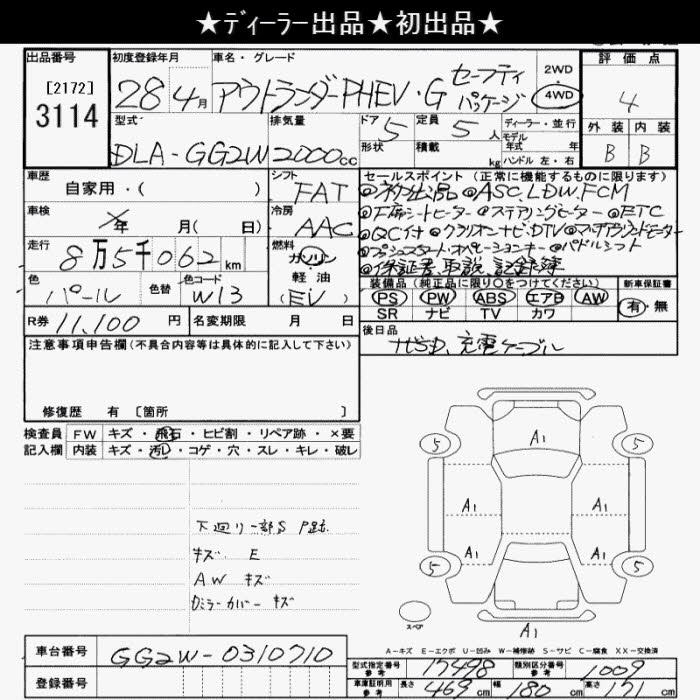 ★ディーラー出品★初出品★
出品番号
[2172]
3114
初度登録年月
28年4月
車名・グレード
アウトランダーPHEV・G セーフティパッケージ
2WD
4WD
評価点
4
外装 内装
B B
型式
DLA-GG2W
排気量
2000cc
ドア 5
形状
定員 5人
積載 kg
ディーラー・並行
モデル
年式 年
ハンドル 左・右
車歴
自家用・( )
シフト
FAT
車検
年 月( 日)
冷房
AAC
走行
8万5千062km
燃料
ガソリン
軽油
(EV)
色
パール
色替
色コード
W13
セールスポイント(正常に機能するものに限ります)
◎初出品 ◎ASC.LDW.FCM
◎F席シートヒーター ◎ステアリングヒーター ◎ETC
◎QC付 ◎クラリオンナビ・DTV
◎プッシュスタート・オペレーションキー ◎パドルシフト
◎保証書、取説、記録簿
装備品(純正品に限り○をつけてください)
PS PW ABS エアB AW
SR ナビ TV カワ
新車保証書
有・無
R券 11,100円
名変期限 月 日
後日品
ナビSD、充電ケーブル
注意事項申告欄(不具合内容等は具体的に記入して下さい)
修復歴 有 [箇所 ]
検査員 FW キズ・飛石・ヒビ割・リペア跡・×要
記入欄 内装 キズ・汚レ・コゲ・穴・スレ・キレ・破レ
下廻り一部S P跡
キズ E
AW キズ
Dミラーカバーキズ
A1
5 5
A1 A1
A1 A1
5 5
スペア
A1
A-キズ E-エクボ U-凹み W-補修跡 S-サビ C-腐食 XX-交換済
車台番号
GG2W-0310710
登録番号
型式指定番号
参考
17498
類別区分番号
参考
1009
車庫証明用
参考
長さ 469cm 幅 180cm 高さ 171cm